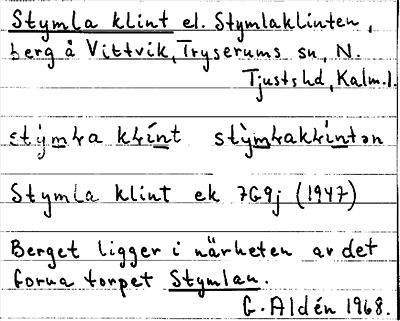 Stymla klint el. Stymlaklinten,
berg å Vittvik, Tryserums sn, N.
Tjustshd, Kalm.l.
stỳmʟa kʟínt stỳmʟakʟìntən
Stymla klint ek 7G9j (1947)
Berget ligger i närheten av det
forna torpet Stymlan.
G. Aldén 1968.